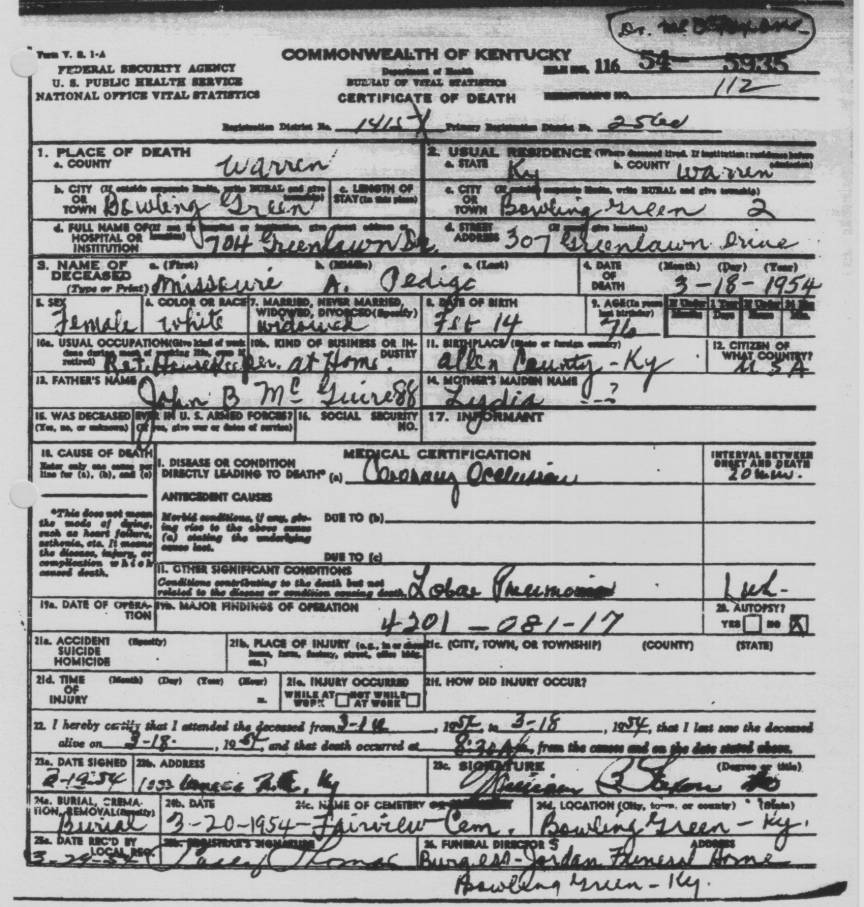 Form V. S. 1-A
FEDERAL SECURITY AGENCY
U. S. PUBLIC HEALTH SERVICE
NATIONAL OFFICE VITAL STATISTICS
COMMONWEALTH OF KENTUCKY
Department of Health
BUREAU OF VITAL STATISTICS
CERTIFICATE OF DEATH
Dr.
FILE NO. 116 54- 5935
REGISTRAR'S NO. 112
Registration District No. 1415 Primary Registration District No.
1. PLACE OF DEATH
a. COUNTY Warren
2. USUAL RESIDENCE (Where deceased lived. If institution: residence before admission)
a. STATE Ky b. COUNTY Warren
b. CITY (If outside corporate limits, write RURAL and give township) OR TOWN Bowling Green
c. LENGTH OF STAY (in this place)
c. CITY (If outside corporate limits, write RURAL and give township) OR TOWN Bowling Green 2
d. FULL NAME OF (If not in hospital or institution, give street address or location) HOSPITAL OR INSTITUTION 704 Greenlawn Dr.
d. STREET ADDRESS (If rural, give location) 307 Greenlawn Drive
3. NAME OF DECEASED (Type or Print)
a. (First) Missouri b. (Middle) A. c. (Last) Pedigo
4. DATE OF DEATH (Month) (Day) (Year) 3-18-1954
5. SEX Female
6. COLOR OR RACE White
7. MARRIED, NEVER MARRIED, WIDOWED, DIVORCED (Specify) Widowed
8. DATE OF BIRTH Feb 14
9. AGE (In years last birthday) 76
If Under 1 Year Months Days
If Under 24 Hrs. Hours Min.
10a. USUAL OCCUPATION (Give kind of work done during most of working life, even if retired) Ret. Housekeeper.
10b. KIND OF BUSINESS OR INDUSTRY at Home.
11. BIRTHPLACE (State or foreign country) Allen County - Ky
12. CITIZEN OF WHAT COUNTRY? USA
13. FATHER'S NAME John B
14. MOTHER'S MAIDEN NAME Lydia ---?
15. WAS DECEASED EVER IN U. S. ARMED FORCES? (Yes, no, or unknown) (If yes, give war or dates of service)
16. SOCIAL SECURITY NO.
17. INFORMANT
18. CAUSE OF DEATH
Enter only one cause per line for (a), (b), and (c)
MEDICAL CERTIFICATION
INTERVAL BETWEEN ONSET AND DEATH
I. DISEASE OR CONDITION DIRECTLY LEADING TO DEATH* (a) Coronary Occlusion 20 min.
*This does not mean the mode of dying, such as heart failure, asthenia, etc. It means the disease, injury, or complication which caused death.
ANTECEDENT CAUSES
Morbid conditions, if any, giving rise to the above cause (a) stating the underlying cause last.
DUE TO (b)
DUE TO (c)
II. OTHER SIGNIFICANT CONDITIONS
Conditions contributing to the death but not related to the disease or condition causing death. Lobar Pneumonia 1 wk.
19a. DATE OF OPERATION
19b. MAJOR FINDINGS OF OPERATION
4201-081-17
20. AUTOPSY?
YES NO X
21a. ACCIDENT SUICIDE HOMICIDE (Specify)
21b. PLACE OF INJURY (e.g., in or about home, farm, factory, street, office bldg., etc.)
21c. (CITY, TOWN, OR TOWNSHIP) (COUNTY) (STATE)
21d. TIME OF INJURY (Month) (Day) (Year) (Hour) m.
21e. INJURY OCCURRED WHILE AT WORK NOT WHILE AT WORK
21f. HOW DID INJURY OCCUR?
22. I hereby certify that I attended the deceased from, 1954 to 3-18, 1954, that I last saw the deceased
alive on 3-18-, 1954, and that death occurred at m., from the causes and on the date stated above.
23a. DATE SIGNED
23b. ADDRESS Ky
23c. SIGNATURE (Degree or title)
24a. BURIAL, CREMATION, REMOVAL (Specify) Burial
24b. DATE 3-20-1954-
24c. NAME OF CEMETERY Fairview Cem.
24d. LOCATION (City, town, or county) (State) Bowling Green - Ky.
25a. DATE REC'D BY LOCAL REG.
25b. REGISTRAR'S SIGNATURE Thomas
26. FUNERAL DIRECTOR'S ADDRESS
Burgess-Jordan Funeral Home
Bowling Green - Ky.